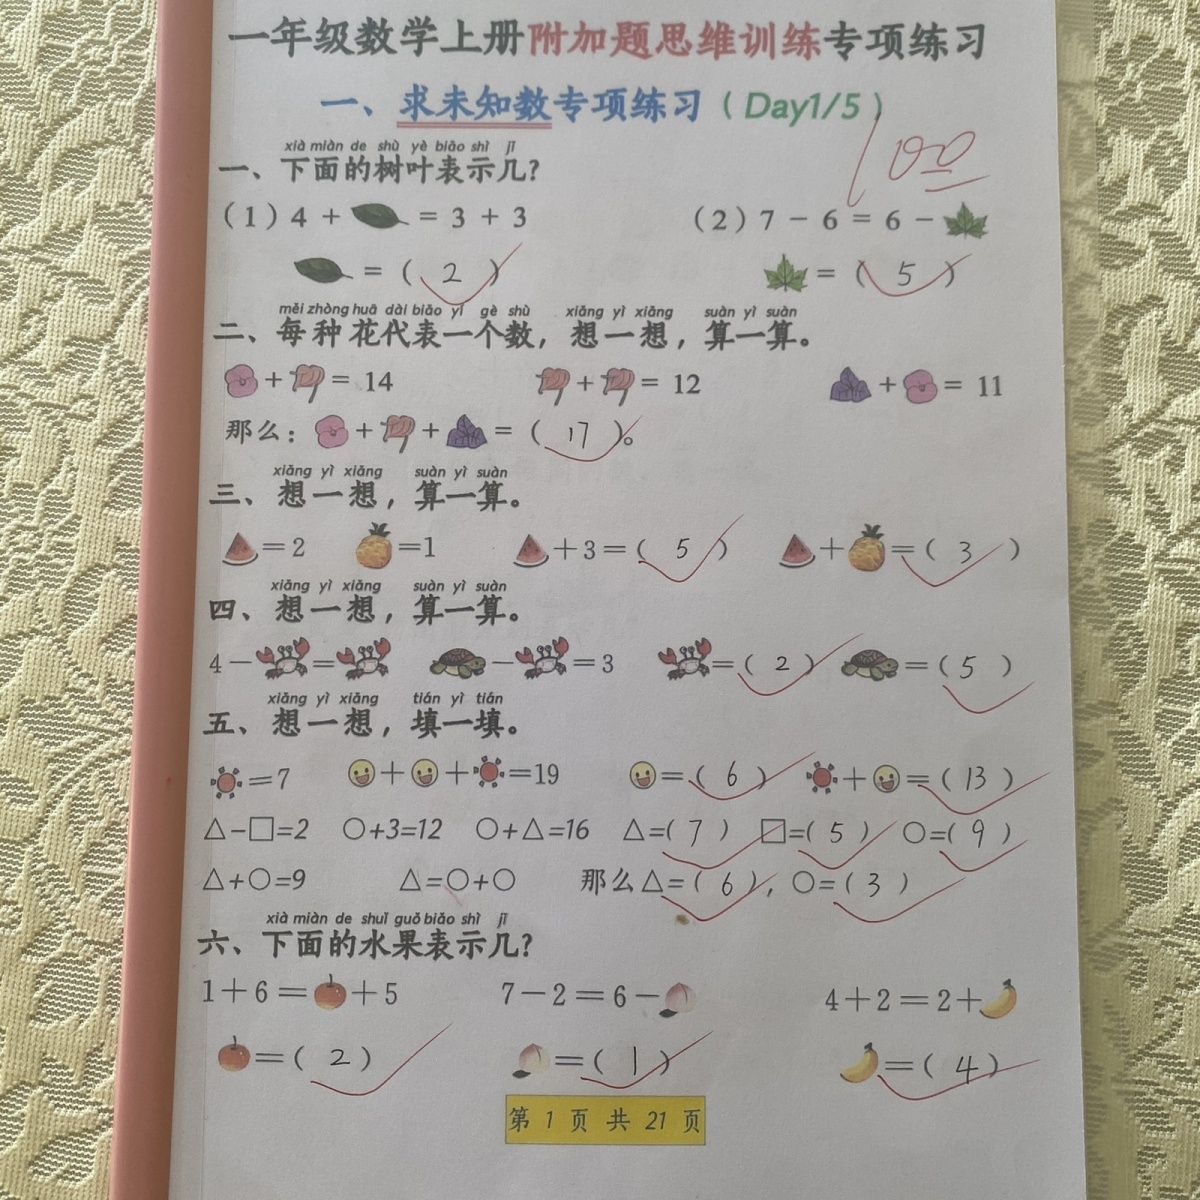 一年级数学上册附加题思维训练专项练习
一、求未知数专项练习（Day1/5）
100
xià miàn de shù yè biǎo shì jǐ
一、下面的树叶表示几?
（1）4 + = 3 + 3 （2）7 - 6 = 6 -
=（ 2 ） =（ 5 ）
měi zhòng huā dài biǎo yí gè shù xiǎng yì xiǎng suàn yì suàn
二、每种花代表一个数，想一想，算一算。
+ = 14 + = 12 + = 11
那么： + + =（ 17 ）。
xiǎng yì xiǎng suàn yì suàn
三、想一想，算一算。
=2 =1 +3=（ 5 ） + =（ 3 ）
xiǎng yì xiǎng suàn yì suàn
四、想一想，算一算。
4- = - =3 =（ 2 ） =（ 5 ）
xiǎng yì xiǎng tián yì tián
五、想一想，填一填。
=7 + + =19 =（ 6 ） + =（ 13 ）
△-□=2 ○+3=12 ○+△=16 △=（ 7 ） □=（ 5 ） ○=（ 9 ）
△+○=9 △=○+○ 那么△=（ 6 ），○=（ 3 ）
xià miàn de shuǐ guǒ biǎo shì jǐ
六、下面的水果表示几?
1+6= +5 7-2=6- 4+2=2+
=（ 2 ） =（ 1 ） =（ 4 ）
第 1 页 共 21 页